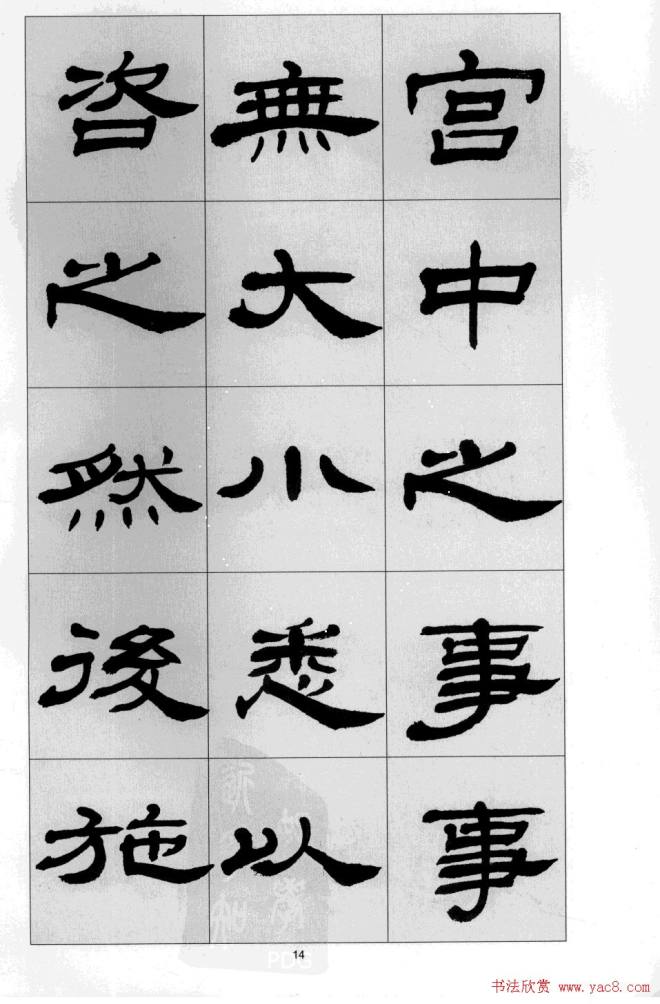 宫中之事事
無大小悉以
咨之然後施
14
书法欣赏 www.yac8.com